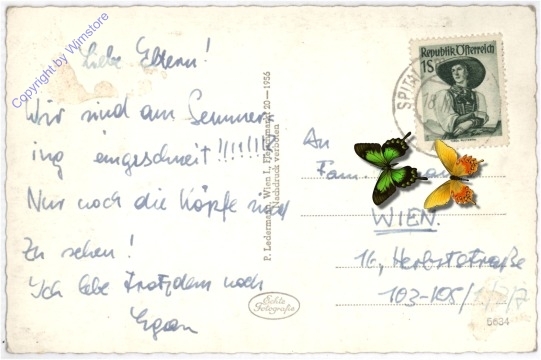 Copyright by Wimstore
Liebe Eltern!
Wir sind am Semmer-
ing eingeschneit!!!!!!!
Nur noch die Köpfe sind
Zu sehen!
Ich lebe trotzdem noch
Egon
P. Ledermann, Wien I., Fleischmarkt 20—1956
Nachdruck verboten
Echte
Fotografie
Republik Österreich
1S
SPITAL
18.
An
Fam.
WIEN.
16, Herbststraße
103-105/
5634